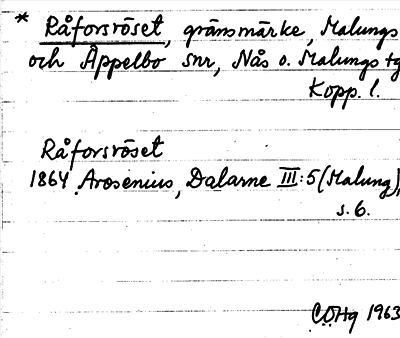 * Råforsröset, gränsmärke, Malungs
och Äppelbo snr, Nås o. Malungs tg
Kopp. l.
Råforsröset
1864 Arosenius, Dalarne III:5 (Malung),
s. 6.
COHg 1963